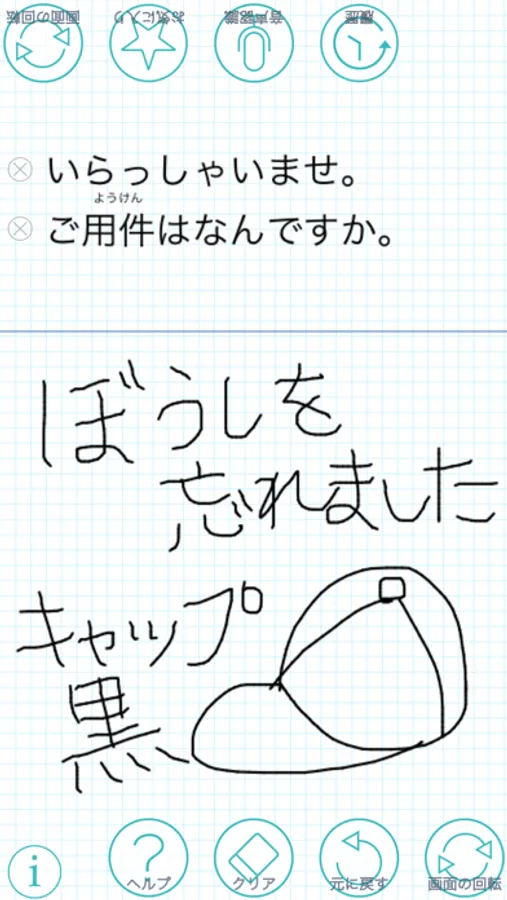 画面の回転 お気に入り 音声認識 履歴
いらっしゃいませ。
ようけん
ご用件はなんですか。
ぼうしを
忘れました
キャップ
黒
i ヘルプ クリア 元に戻す 画面の回転